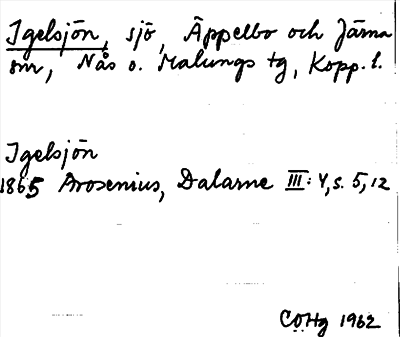 Igelsjön, sjö, Äppelbo och Järna
snr, Nås o. Malungs tg, Kopp. l.
Igelsjön
1865 Arosenius, Dalarne III: 4, s. 5, 12
COHg 1962